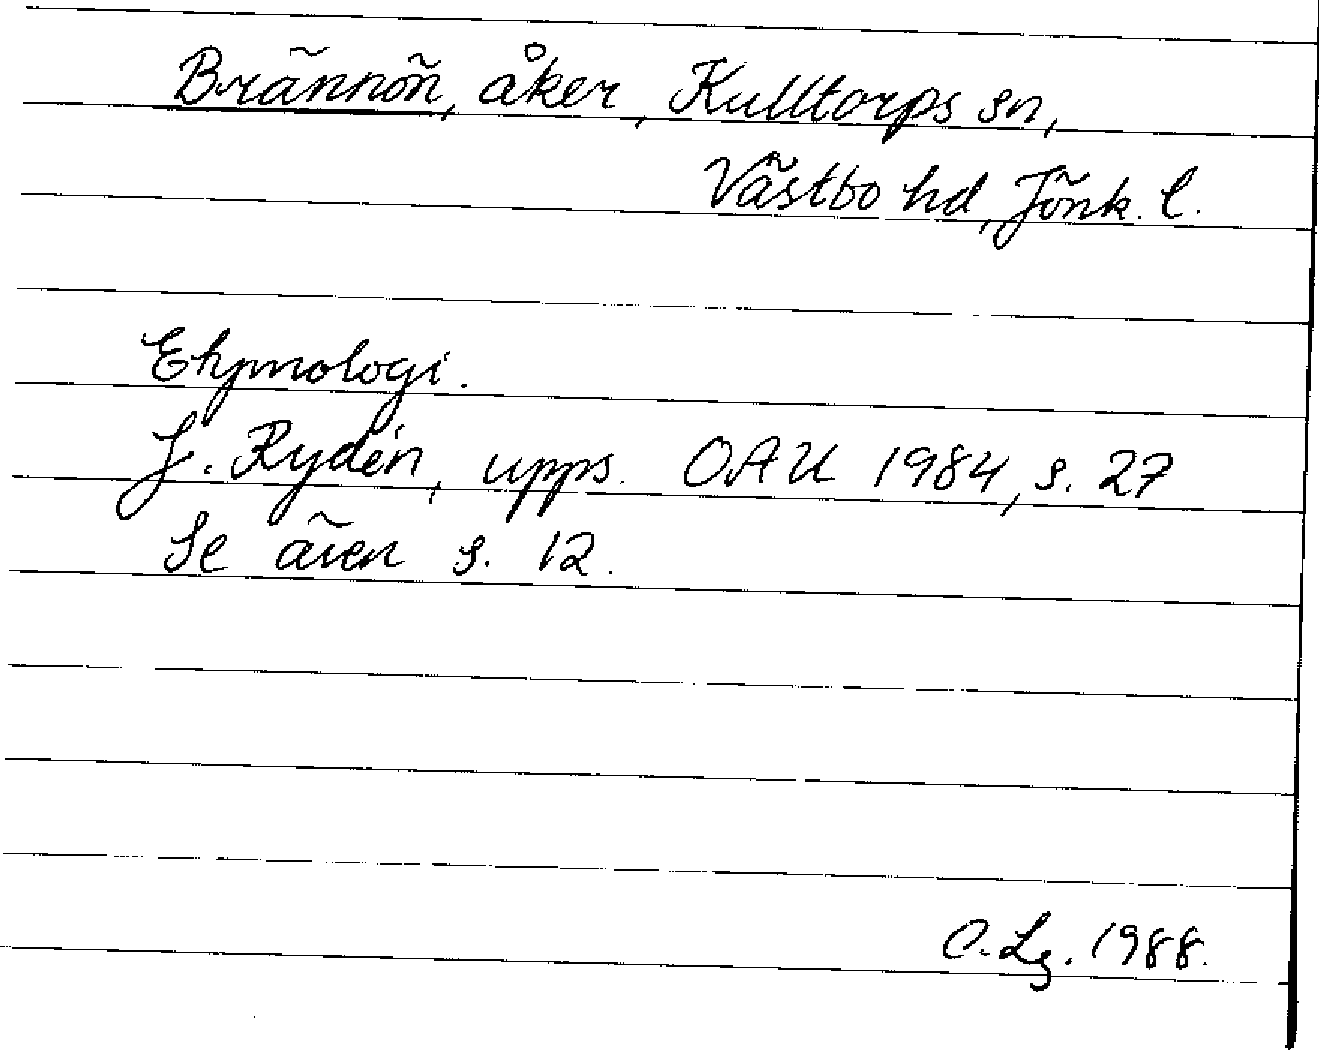 Brännön, åker, Kulltorps sn,
Västbo hd, Jönk. l.
Etymologi.
J. Rydén, upps. OAU 1984, s. 27
Se även s. 12.
C. Lg. 1988.